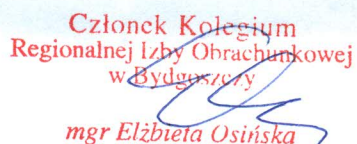 Członek Kolegium
Regionalnej Izby Obrachunkowej
w Bydgoszczy
mgr Elżbieta Osińska